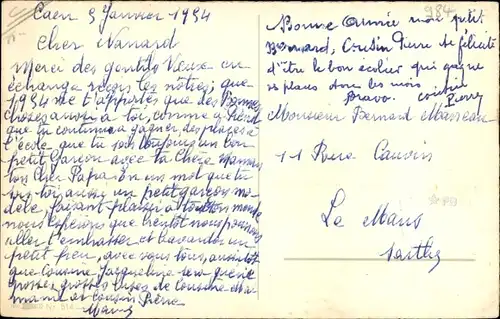 Caen 3 Janvier 1934
Cher Nanard
Merci des gentils Veux en
échange reçois les nôtres; que
1934 ne t'apporte que des Bonnes
choses ainsi à toi, comme à
que tu continue à gagner des places à
l'école que tu sois toujours un bon
petit Garçon avec ta Chère Maman
ton Cher Papa en un mot que tu
sois toi, aussi un petit garçon mo-
dèle, faisant plaisir à tout le monde
nous espérons que bientôt nous pourrons
aller t'embrasser et bavarder un
petit peu, avec vous tous, aussitôt
que Cousine Jacqueline sera guérie
grosses, grosses bises de Cousine Ma-
mama et Cousin Pierre
984
Bonne Année mon petit
Bernard, Cousin Pierre te félicite
d'être le bon écolier qui gagne
ses places dans les mois
Bravo. Cousin
Pierre
Monsieur Bernard Masseau
11 Rue Cauvin
Le Mans
Sarthe